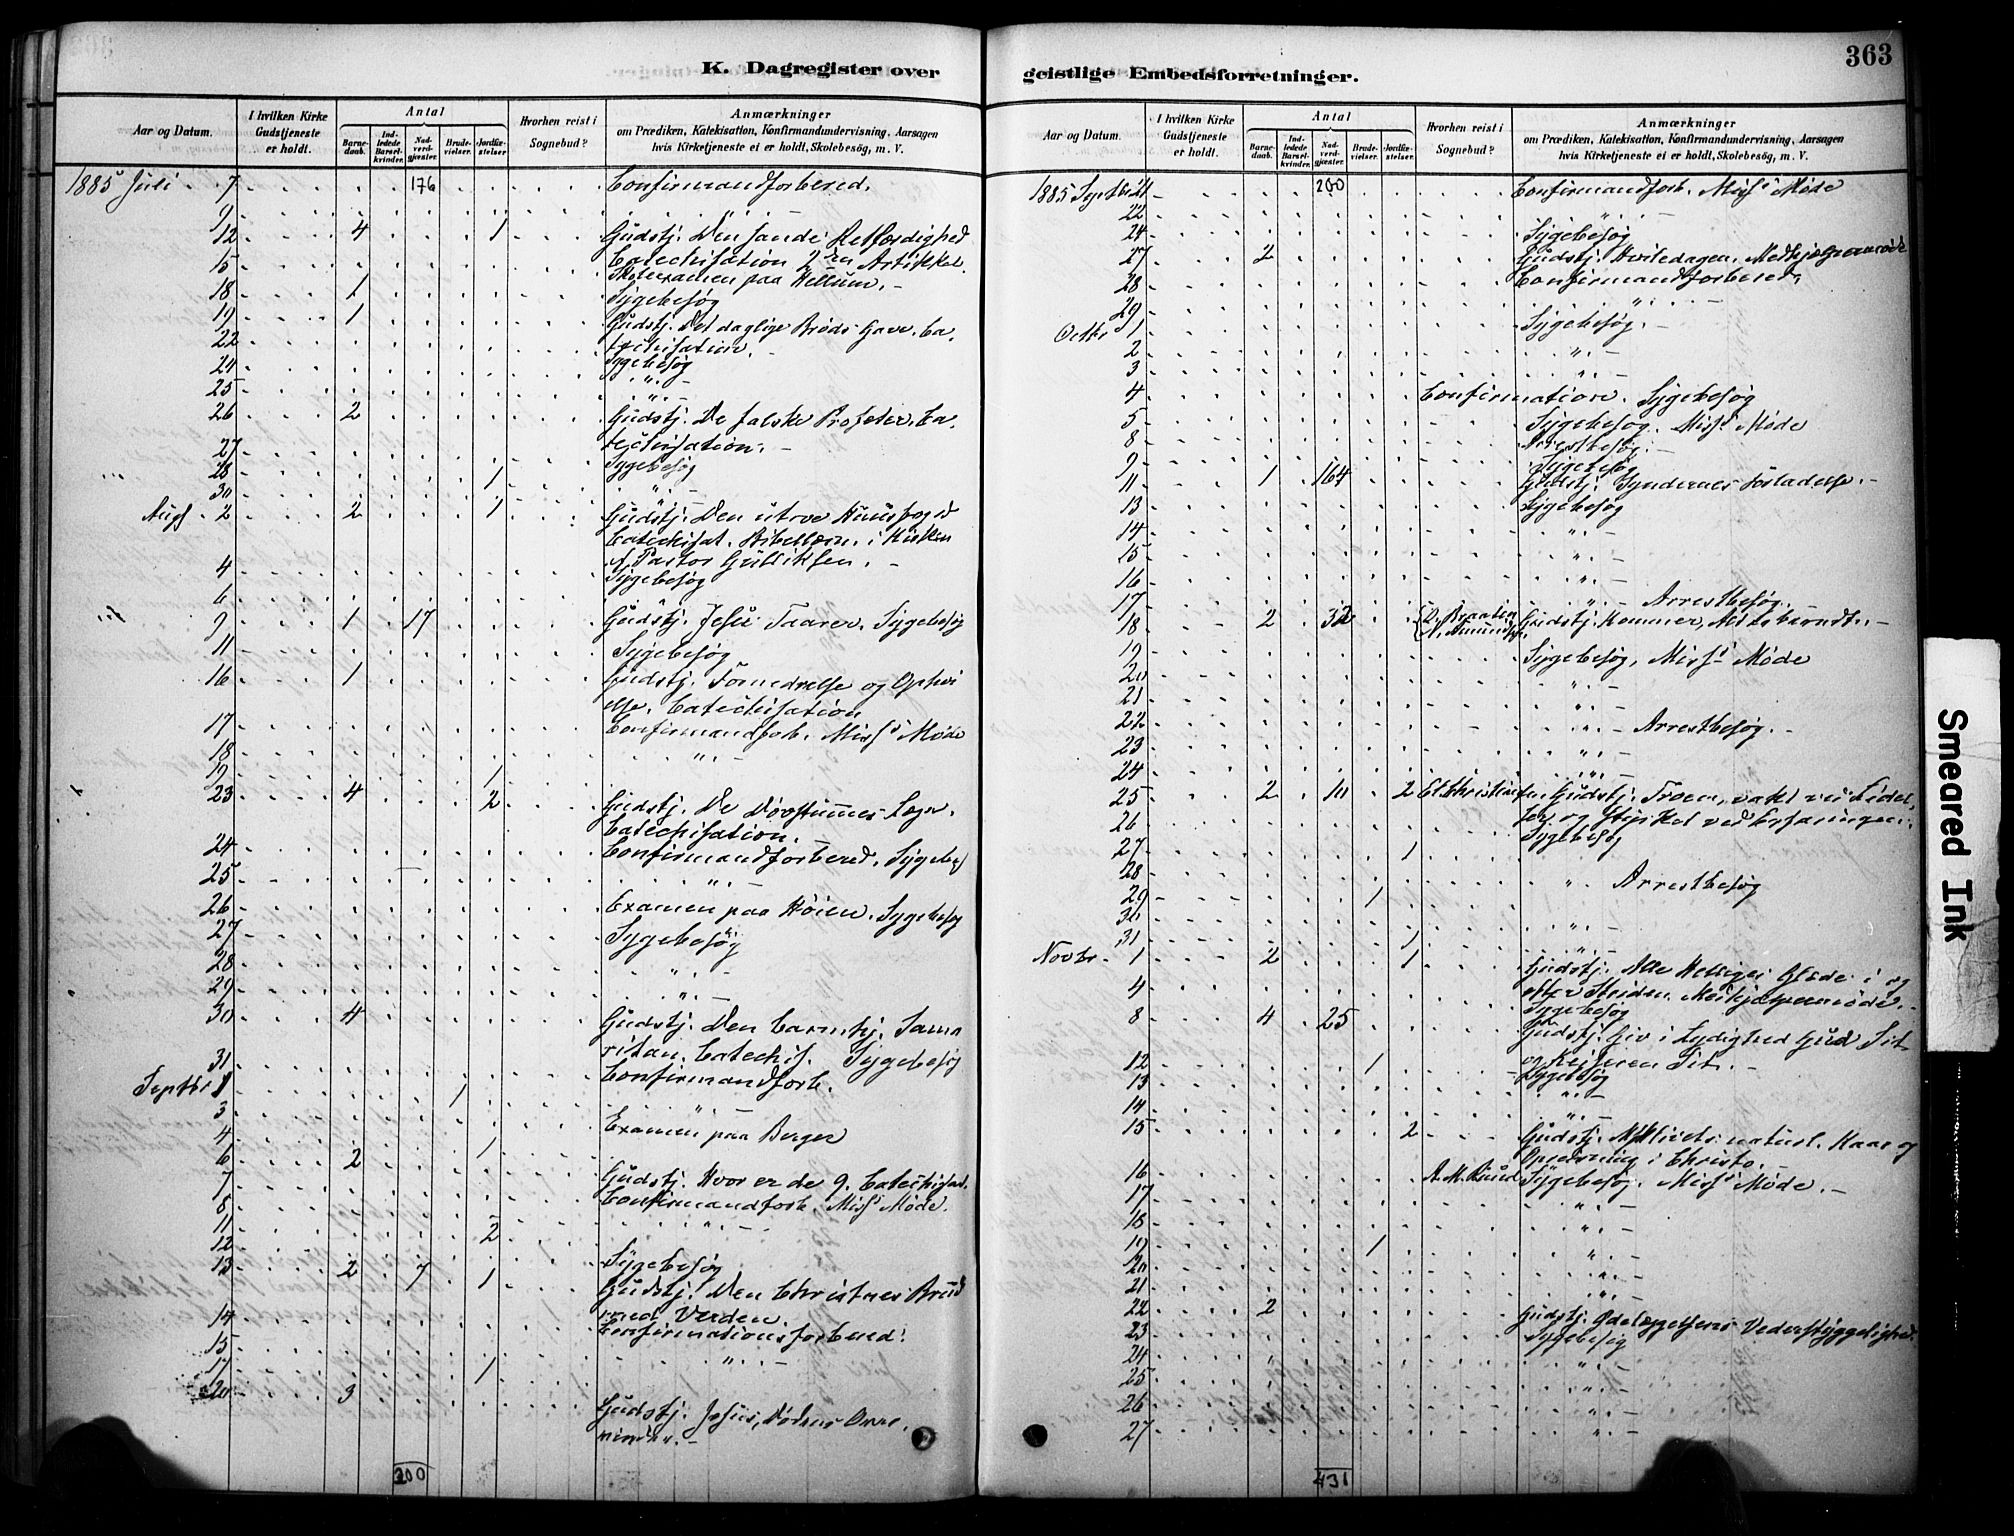 363
K. Dagregister over
geistlige Embedsforretninger.
Aar og Datum.
I hvilken Kirke Gudstjeneste er holdt.
Antal
Barnedaab.
Indledede Barselkvinder.
Nadverdgjæster.
Brudevielser.
Jordfæstelser.
Hvorhen reist i Sognebud?
Anmærkninger
om Prædiken, Katekisation, Konfirmandundervisning, Aarsagen
hvis Kirketjeneste ei er holdt, Skolebesög, m. V.
1885 Juli 7 176 Confirmandforbered.
9 " -
12 4 1 Gudstj. Den sande Retfærdighed
Catechisation 2den Artikkel.
15 Skoleexamen paa Hellum. -
18 1 Sygebesøg
19 1 Gudstj. Det daglige Brøds Gave. Ca-
techisation. -
22 Sygebesøg
24 " -
25
26 2 Gudstj. De falske Profeter. Ca-
techisation. -
27 Sygebesøg
28 1 " -
30
Augs. 2 2 1 Gudstj. Den utroe Huusfoged
Catechisat. i Kirken
af Pastor Gulliksen. -
4 Sygebesøg
6
9 1 17 Gudstj. Jesu Taarer. Sygebesøg
11 Sygebesøg
16 1 Gudstj. Fornedrelse og Ophøi
else. Catechisation
17 Confirmandforb. Miss's Møde
18 " -
19 1
23 4 2 Gudstj. De Døvstummes Lægr.
Catechisation.
24 Confirmandforbered. Sygebes
25 " -
26 Examen paa Høien. Sygebesøg
27 Sygebesøg
28 " -
29 " -
30 4 Gudstj. Den barmhj. Sama
ritan. Catechis. Sygebesøg
31 Confirmandforb.
Septbr 1 1
3 " -
4 Examen paa Berger
6 2 1
7 Gudstj. Hvor er de 9. Catechisat.
8 Confirmandforb. Miss's Møde.
11 2 " -
12 Sygebesøg
13 2 7 1 Gudstj. Den Christnes Brud
med Verden.
14 Confirmationsforbered.
15 " -
17 1
20 3 Gudstj. Jesus, Dødens Over-
vinder. -
200
Aar og Datum.
I hvilken Kirke Gudstjeneste er holdt.
Antal
Barnedaab.
Indledede Barselkvinder.
Nadverdgjæster.
Brudevielser.
Jordfæstelser.
Hvorhen reist i Sognebud?
Anmærkninger
om Prædiken, Katekisation, Konfirmandundervisning, Aarsagen
hvis Kirketjeneste ei er holdt, Skolebesög, m. V.
1885 Septbr 21 200 Confirmandforb. Miss's Møde
22 " -
24 Sygebesøg
27 2 Gudstj. Hviledagen. Medhjælpermøde
28 Confirmandforbered.
29 " -
Octbr 1 Sygebesøg. -
2 " -
3 " -
4 Confirmation. Sygebesøg
5 Sygebesøg. Miss's Møde
8 Arrestbesøg. -
9 Sygebesøg
11 1 164 Gudstj. Syndernes Forladelse. -
13 Sygebesøg
14 " -
15 " -
16 " -
17 " - Arrestbesøg.
18 2 32 Gudstj.
19 Sygebesøg, Miss's Møde
20 " -
21
22 " - Arrestbesøg. -
23 " -
24 " -
25 2 10 2 Gudstj. Troen, vakt ved Lidel
se og styrket ved Erfaringen.
26 Sygebesøg
27 1
28 " Arrestbesøg
29 1
30 " -
31 1 " -
Novbr. 1 2 1 Gudstj. Alle Helliges Glæde i og
efter Striden. Medhjælpermøde. -
4 Sygebesøg
8 4 25 Gudstj. Giv i Lydighed Gud Sit
og Keiseren Sit. -
12 1 Sygebesøg
13 " -
14 " -
15 2 Gudstj. Kaar og
Opreisning i Christo.
16 Sygebesøg. Miss's Møde. -
17 " -
18 " -
19 1 " -
20 " -
21 " -
22 2 Gudstj. Ødelæggelsens Vederstyggelighed
23 Sygebesøg
24 " -
25 " -
26 " -
27
431
Smeared Ink